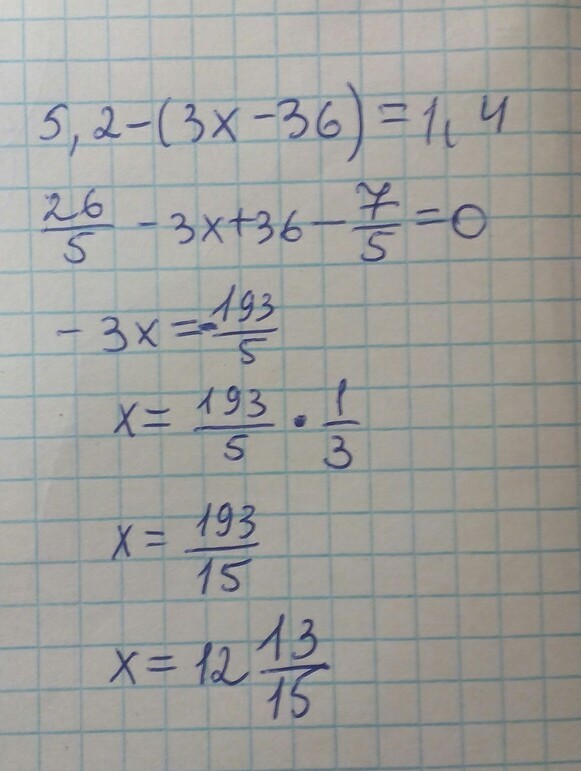 5,2-(3x-36)=1,4
26/5 -3x+36- 7/5 =0
-3x=- 193/5
x= 193/5 · 1/3
x= 193/15
x=12 13/15